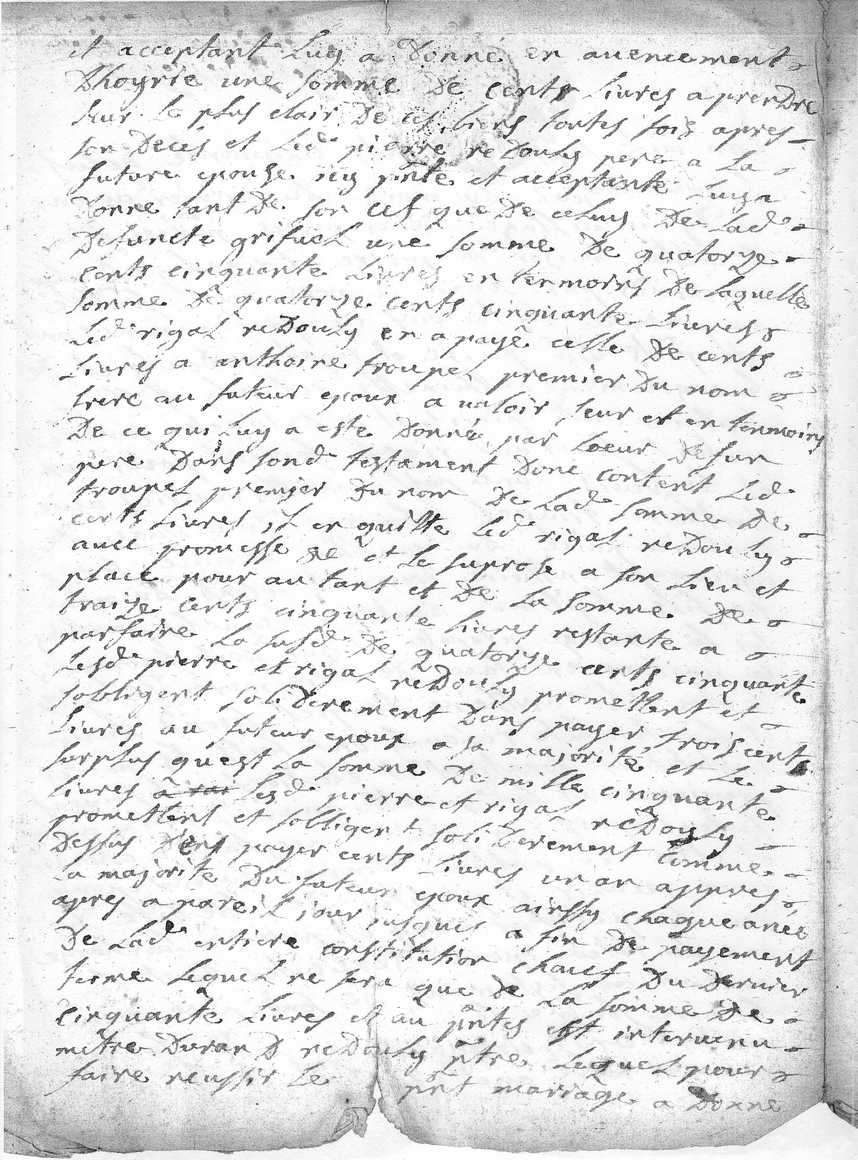 et acceptant luy a donné en auencement
dhoyrie une somme de cents liures a prendre
sur le plus clair de ces biens toutes fois apres
son deces et led pierre redouly pere a la
future epouse icy pnte et acceptante luy a
donne tant de son cef que de celuy de lad
defuncte grifuel une somme de quatorze
cents cinquante liures en termoins de laquelle
somme de quatorze cents cinquante liures
led rigal redouly en a payé celle de cents
liures a anthoine troupel premier du nom
frere au futeur epoux a ualoir seur et en termoins
de ce qui luy a este donné par loeur defun
pere dans sond testament donc content led
troupel premier du nom de lad somme de
cents liures il en quitte led rigal redouly
auec promesse de et le suprose a son lieu et
place pour autant et de la somme de
traize cents cinquante liures restante a
parfaire la susd de quatorze cents cinquante
lesd pierre et rigal redouly promettent et
sobligent soliderement dans payer trois cent
liures au futeur epoux a sa majorité et le
surplus quest la somme de mille cinquante
liures lesd pierre et rigal redouly
promettent et sobligent soliderement comme
dessus dens payer cents liures un an appres
la majorite du futeur epoux ainssy chaque anée
apres a pareil jour jusques a fin de payement
de lad entiere constitution chauf du dernier
terme lequel ne sera que de la somme de
cinquante liures et au pntes est interuenu
metre durand redouly ptre lequel pour
faire reussir le pnt mariage a donne